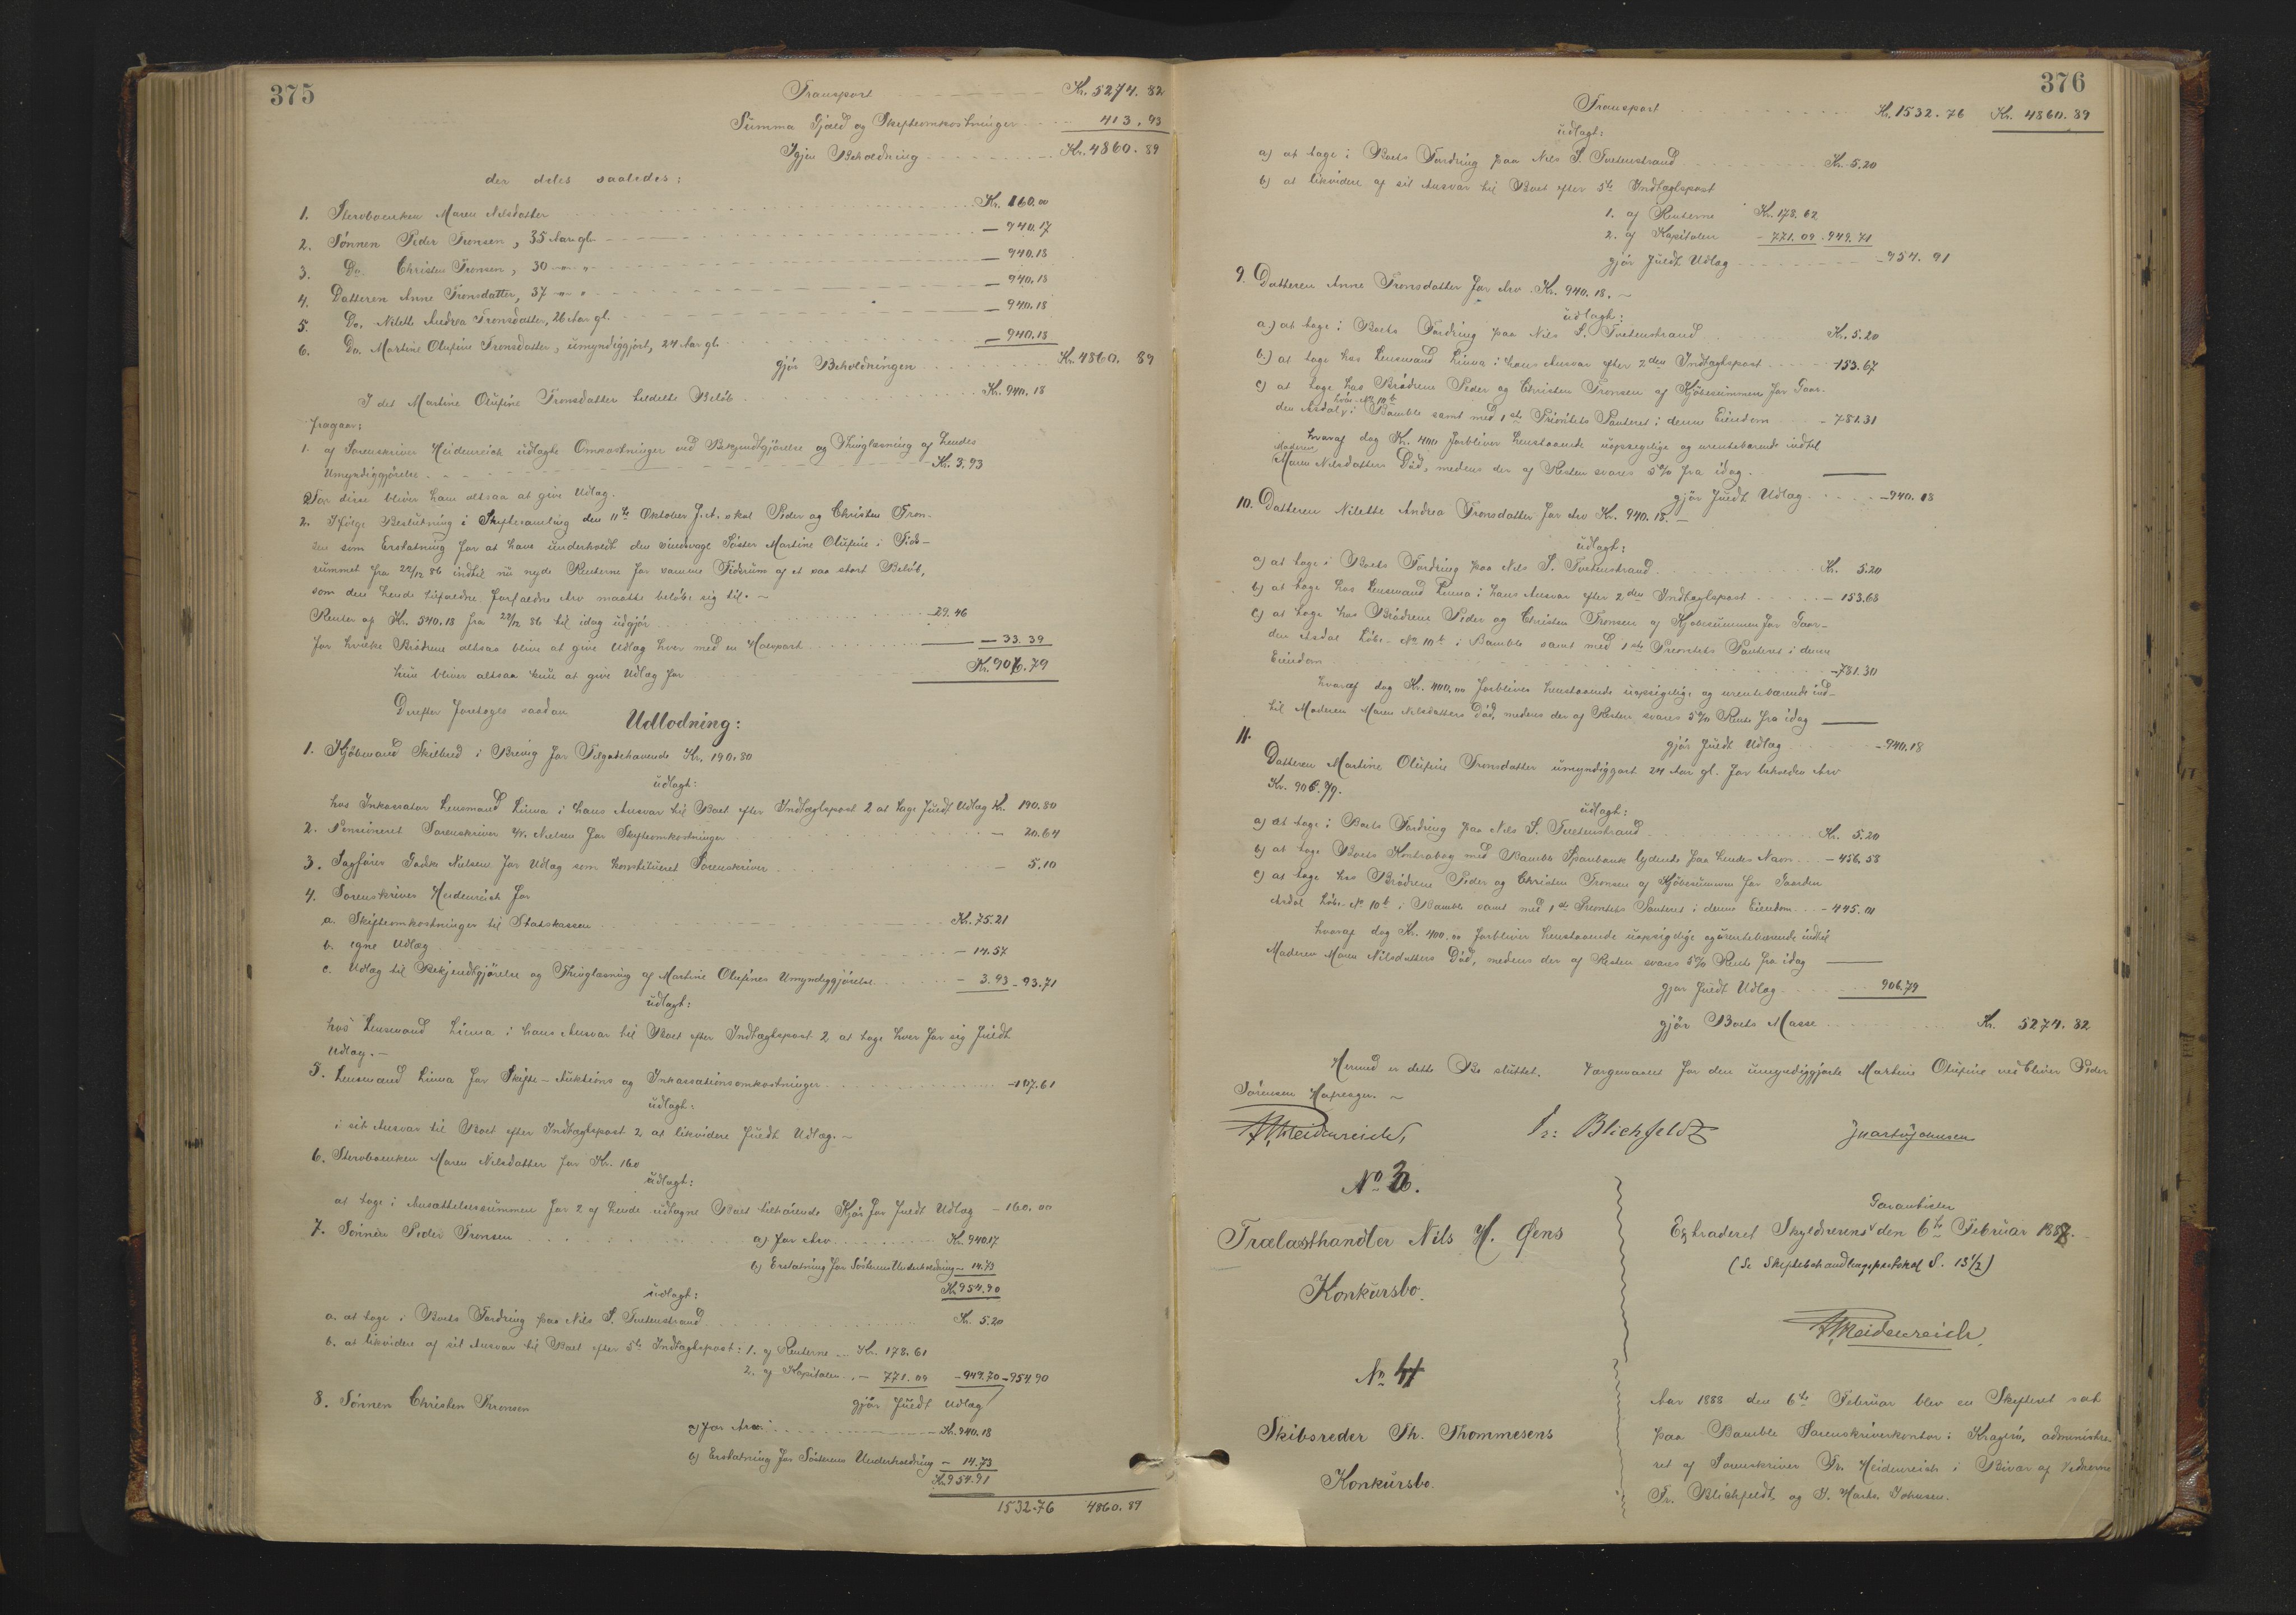 375
Transport Kr. 5274.82
Summa Gjæld og Skifteomkostninger 413.93
Igjen Beholdning Kr. 4860.89
der deles saaledes:
1. Stervboenken Maren Nilsdatter Kr. 160.00
2. Sønnen Peder Tronsen, 35 Aar gl. — 940.17
3. Do. Christen Tronsen, 30 — 940.18
4. Datteren Anne Tronsdatter, 37 — 940.18
5. Do. Nilette Andrea Tronsdatter, 26 Aar gl. — 940.18
6. Do. Martine Olufine Tronsdatter, umyndiggjort, 24 Aar gl. — 940.18
gjør Beholdningen Kr. 4860.89
I det Martine Olufine Tronsdatter tildelte Beløb Kr. 940.18
fragaar:
1. af Sorenskriver Heidenreich udlagte Omkostninger ved Bekjendtgjørelse og Thinglæsning af hendes
Umyndiggjørelse Kr. 3.93
For disse bliver ham altsaa at give Udlæg.
2. Ifølge Beslutning i Skiftesamling den 11te Oktober f.A. skal Peder og Christen Tron-
sen som Erstatning for at have underholdt den sindsvage Søster Martine Olufine i Tids-
rummet fra 22/12 86 indtil nu nyde Renterne for samme Tidsrum af et saa stort Beløb,
som den hende tilfaldne Arv maatte beløbe sig til. —
Renter af Kr. 540.18 fra 22/12 86 til idag udgjør 29.46
for hvilke Brødrene altsaa blive at give Udlæg hver med en Halvpart — 33.39
hun bliver altsaa kun at give Udlæg for Kr. 906.79
Derefter foretoges saadan
Udlodning:
1. Kjøbmand Skilbred i Brevig for Tilgodehavende Kr. 190.80
udlagt:
hos Inkassator Lensmand Linna i hans Ansvar til Boet efter Indtægtspost 2 at tage fuldt Udlæg Kr. 190.80
2. Pensioneret Sorenskriver Nielsen for Skifteomkostninger — 20.64
3. Sagfører Nielsen for Udlæg som konstitueret Sorenskriver — 5.10
4. Sorenskriver Heidenreich for
a. Skifteomkostninger til Statskassen Kr. 75.21
b. egne Udlæg — 14.57
c. Udlæg til Bekjendtgjørelse og Thinglæsning af Martine Olufines Umyndiggjørelse — 3.93 - 93.71
udlagt:
hos Lensmand Linna i hans Ansvar til Boet efter Indtægtspost 2 at tage hver for sig fuldt
Udlæg. —
5. Lensmand Linna for Skifte- Auktions og Inkassationsomkostninger - 107.61
udlagt:
i sit Ansvar til Boet efter Indtægtspost 2 at likvidere fuldt Udlæg. —
6. Stervboenken Maren Nilsdatter for Kr. 160
udlagt:
at tage i Ansættelsessummen for 2 af hende udtagne Boet tilhørende Kjør for fuldt Udlæg - 160.00
7. Sønnen Peder Tronsen a) for Arv Kr. 940.17
b) Erstatning for Søsterens Underholdning — 14.73
Kr. 954.90
udlagt:
a. at tage i Boets Fordring paa Nils S. Tvetenstrand Kr. 5.20
b. at likvidere af sit Ansvar til Boet efter 5te Indtægtspost: 1. af Renterne — Kr. 178.61
2. af Kapitalen — 771.09 - 949.70 - 954.90
gjør fuldt Udlæg
8. Sønnen Christen Tronsen
a) for Arv Kr. 940.18
b) Erstatning for Søsterens Underholdning — 14.73
Kr. 954.91
1532.76 4860.89
376
Transport Kr. 1532.76 Kr. 4860.89
udlagt:
a) at tage i Boets Fordring paa Nils S. Tvetenstrand Kr. 5.20
b) at likvidere af sit Ansvar til Boet efter 5te Indtægtspost
1. af Renterne Kr. 178.62
2. af Kapitalen - 771.09 - 949.71
gjør fuldt Udlæg - 954.91
9. Datteren Anne Tronsdatter for Arv Kr. 940.18. —
udlagt:
a) at tage i Boets Fordring paa Nils S. Tvetenstrand Kr. 5.20
b) at tage hos Lensmand Linna i hans Ansvar efter 2den Indtægtspost - 153.67
c) at tage hos Brødrene Peder og Christen Tronsen af Kjøbesummen for Gaar-
den Asdal, Løbe No 10b i Bamble samt med 1ste Prioritets Panteret i denne Eiendom - 781.31
hvoraf dog Kr. 400 forbliver henstaaende uopsigelige og urentebærende indtil
Moderen Maren Nilsdatters Død, medens der af Resten svares 5% fra idag.
gjør fuldt Udlæg - 940.18
10. Datteren Nilette Andrea Tronsdatter for Arv Kr. 940.18. —
udlagt:
a) at tage i Boets Fordring paa Nils S. Tvetenstrand Kr. 5.20
b) at tage hos Lensmand Linna i hans Ansvar efter 2den Indtægtspost — 153.68
c) at tage hos Brødrene Peder og Christen Tronsen af Kjøbesummen for Gaar-
den Asdal Løbe-No 10b i Bamble samt med 1ste Prioritets Panteret i denne
Eiendom - 781.30
hvoraf dog Kr. 400.00 forbliver henstaaende uopsigelige og urentebærende ind-
til Moderen Maren Nilsdatters Død, medens der af Resten svares 5% Rente fra idag
gjør fuldt Udlæg - 940.18
11. Datteren Martine Olufine Tronsdatter umyndiggjort 24 Aar gl. for beholden Arv
Kr. 906.79.
udlagt:
a) at tage i Boets Fordring paa Nils S. Tvetenstrand Kr. 5.20
b) at tage Boets Kontrabog med Bamble Sparebank lydende paa hendes Navn — 456.58
c) at tage hos Brødrene Peder og Christen Tronsen af Kjøbesummen for Gaarden
Asdal Løbe-No 10b i Bamble samt med 1ste Prioritets Panteret i denne Eiendom — 445.01
hvoraf dog Kr. 400.00 forbliver henstaaende uopsigelige og urentebærende indtil
Moderen Maren Nilsdatters Død, medens der af Resten svares 5% Rente fra idag
gjør fuldt Udlæg 906.79
gjør Boets Masse Kr. 5274.82
Hermed er dette Bo sluttet. Værgemaalet for den umyndiggjorte Martine Olufine Peder
Sørensen
Heidenreich, Fr: Blichfeldt
No 3.
Trælasthandler Nils H. Øens
Konkursbo.
Garantister
Extraderet Skyldnerens den 6te Februar 1888.
(Se Skiftebehandlingsprotokol S. 151/2)
Heidenreich
No 4
Skibsreder Th. Thommesens
Konkursbo.
Aar 1888 den 6te Februar blev en Skifteret sat
paa Bamble Sorenskriverkontor i Kragerø, administre-
ret af Sorenskriver Fr. Heidenreich i Bivær af Vidnerne
Fr. Blichfeldt og J. Mart. Johnsen.